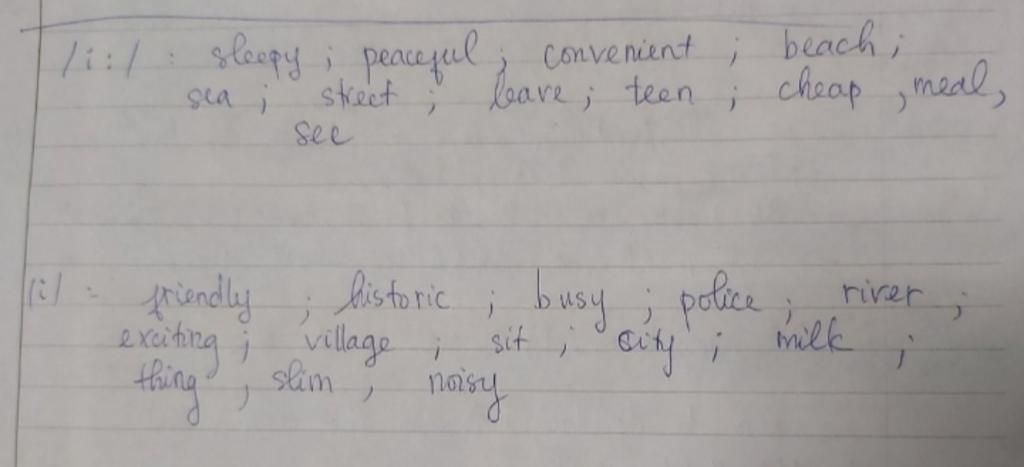 /i:/ : sleepy ; peaceful ; convenient ; beach ;
sea ; street ; leave ; teen ; cheap , meal,
see
/i/ : friendly ; historic ; busy ; police ; river ;
exciting ; village ; sit ; city ; milk ;
thing , slim , noisy